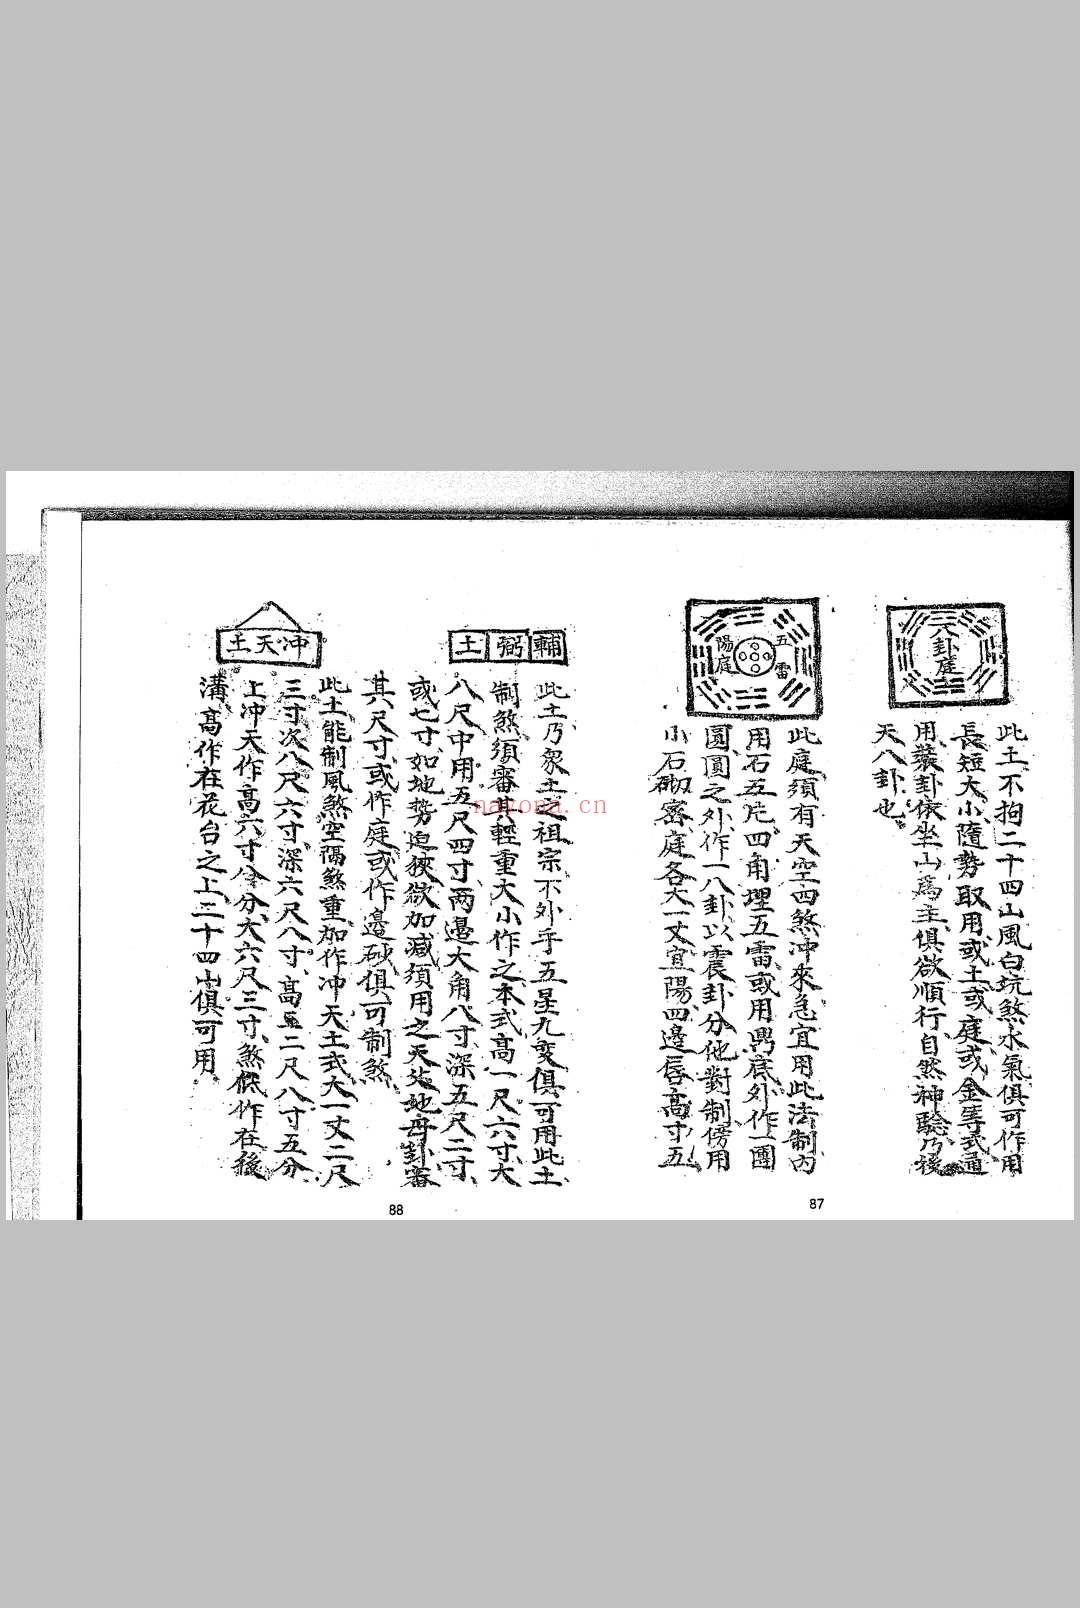 八卦庭
此土不拘二十四山風白坑煞水氣俱可作用
長短大小隨勢取用或土或庭或金等式通
用裝卦依坐山爲主俱欲順行自然神驗乃後
天八卦也
五雷
陽庭
此庭須有天空四煞冲來急宜用此法制內
用石五片四角埋五雷或用禺底外作一圑
圓圓之外作一八卦以震卦分他對制傍用
小石砌密庭各大一丈宜陽四邊唇高寸五
87
輔弼土
此土乃衆土之祖宗不外乎五星九變俱可用此土
制煞須審其輕重大小作之本式高一尺六寸大
八尺中用五尺四寸兩邊大角八寸深五尺二寸
或七寸如地势迫狹欲加減須用之天地母卦審
其尺寸或作庭或作邊砂俱可制煞
冲天土
此土能制風煞空隔煞重加作冲天土式大一丈二尺
三寸次八尺六寸深六尺八寸高五二尺八寸五分
上冲天作高六寸分大六尺三寸煞低作在後
溝高作在花台之上二十四山俱可用
88
nayona.cn